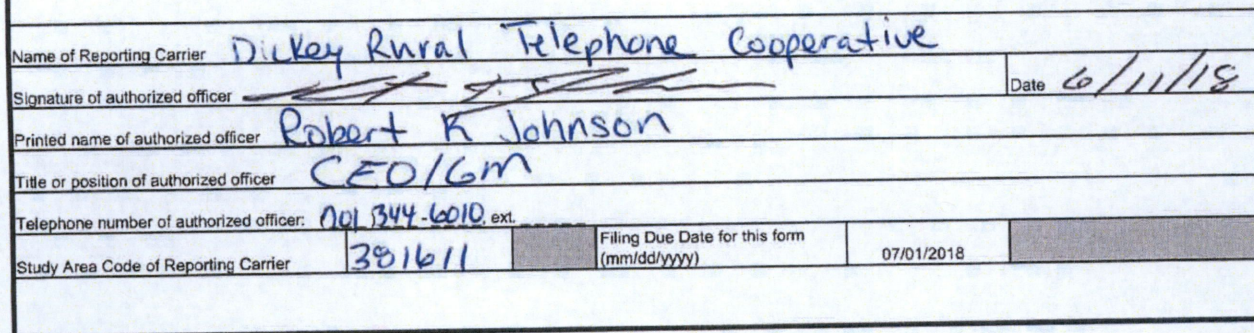 Name of Reporting Carrier Dickey Rural Telephone Cooperative
Signature of authorized officer Date 6/11/18
Printed name of authorized officer Robert K Johnson
Title or position of authorized officer CEO/GM
Telephone number of authorized officer: 701 344-6010, ext.
Study Area Code of Reporting Carrier 381611 Filing Due Date for this form (mm/dd/yyyy) 07/01/2018